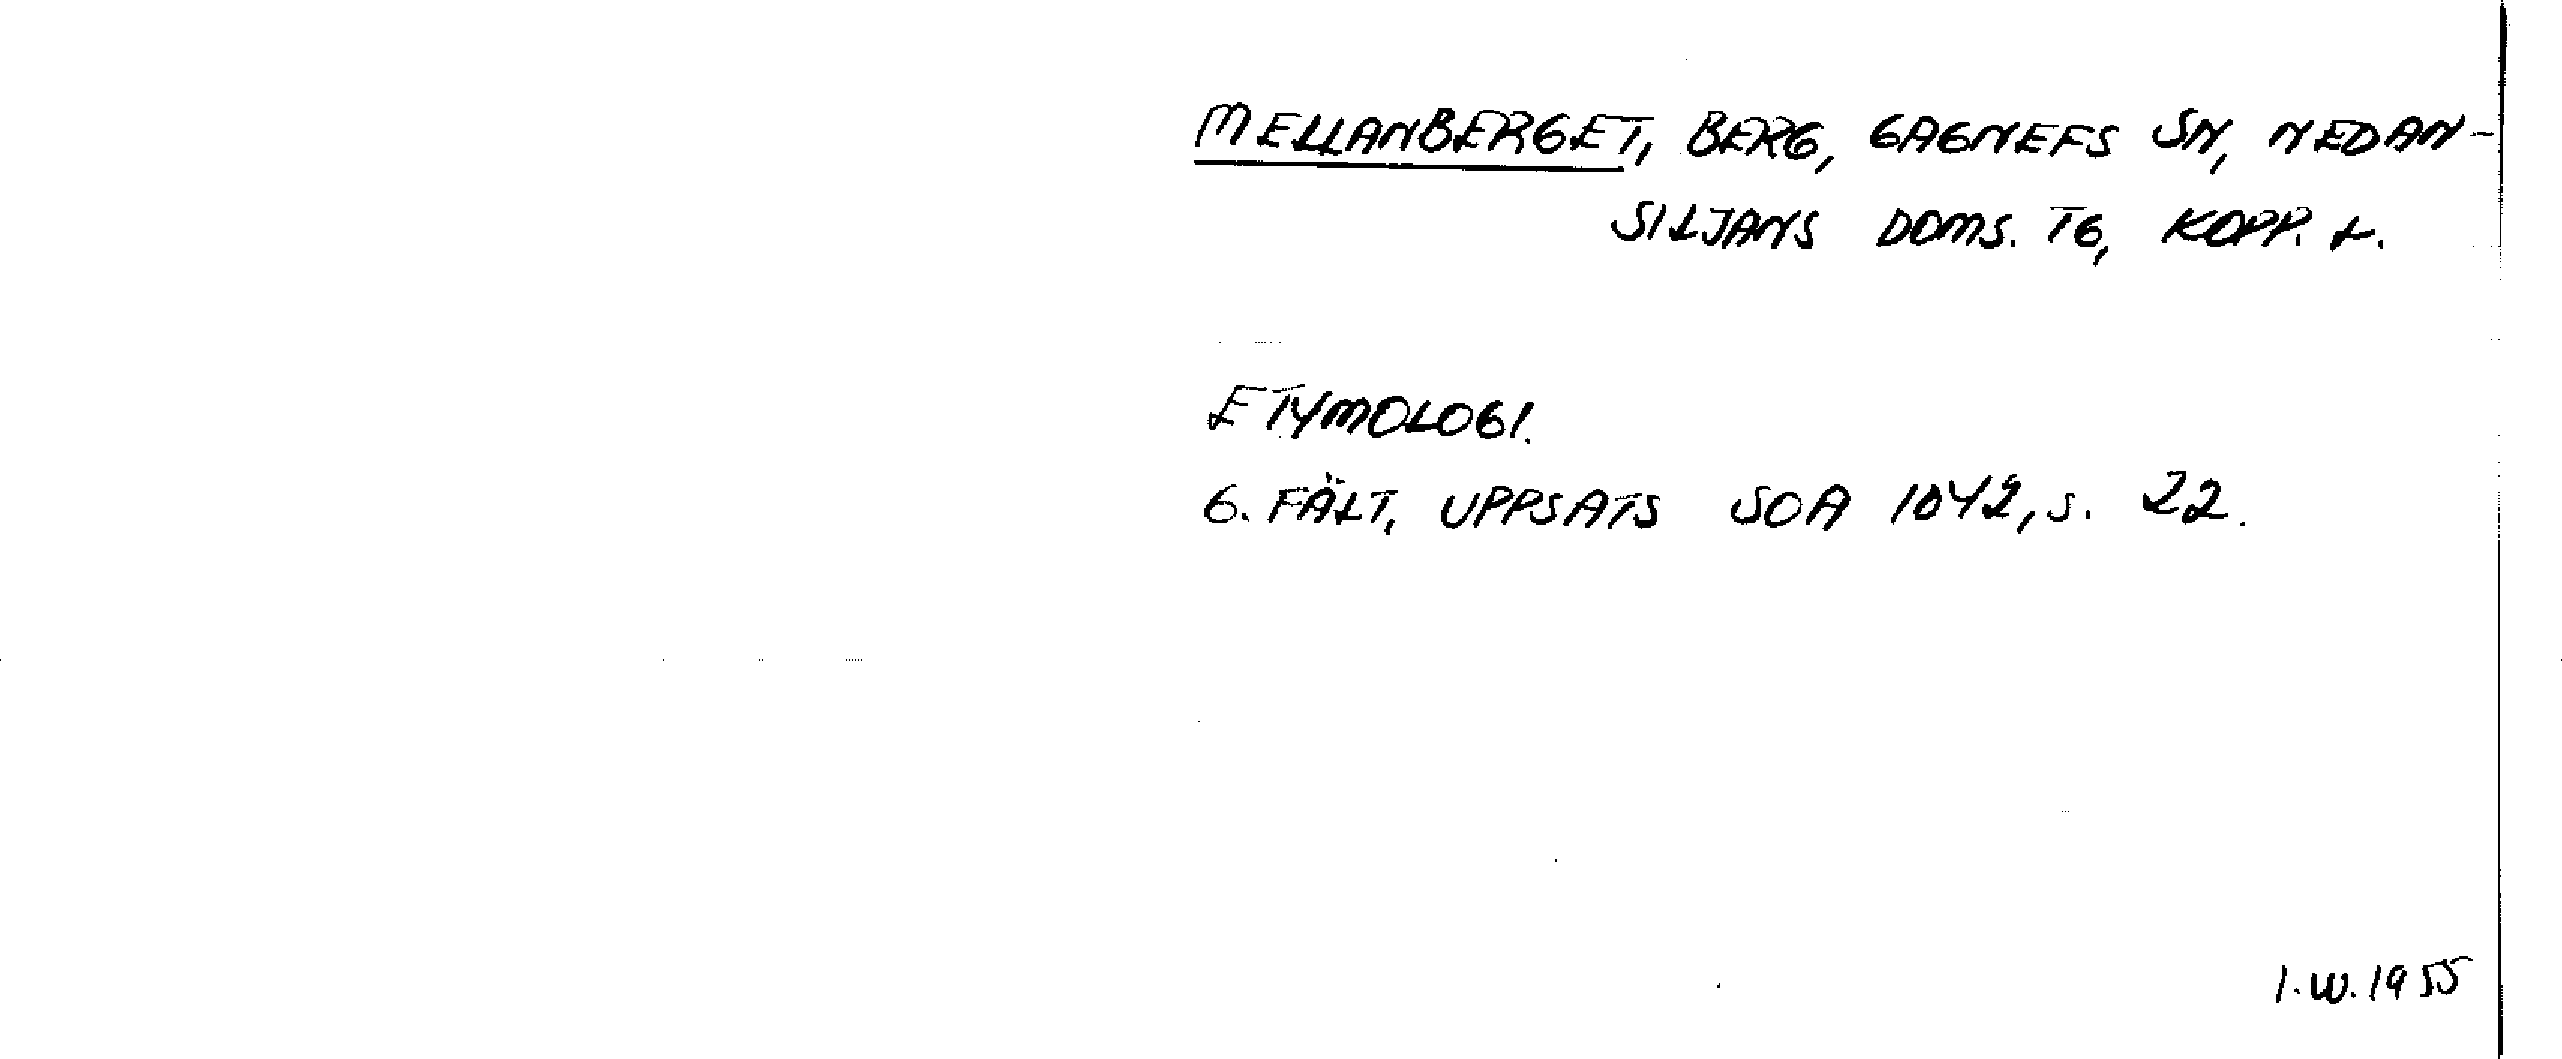 MELLANBERGET, BERG, GAGNEFS SN, NEDAN-
SILJANS DOMS. TG, KOPP. L.
ETYMOLOGI.
G. FÄLT, UPPSATS SOA 1042, S. 22.
I.W. 1955